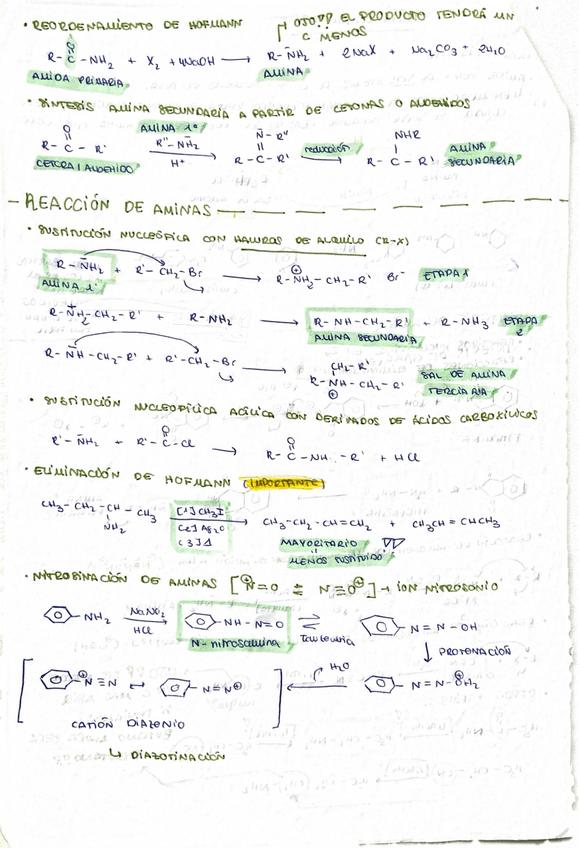 · REORDENAMIENTO DE HOFMANN
OJO!! EL PRODUCTO TENDRÁ UN
C MENOS
O
R-C-NH2 + X2 + 4NaOH → R-NH2 + 2NaX + Na2CO3 + 2H2O
AMIDA PRIMARIA AMINA
· SÍNTESIS AMINA SECUNDARIA A PARTIR DE CETONAS O ALDEHIDOS
O AMINA 1ª N-R" NHR
R-C-R' R"-NH2 H+ R-C-R' reducción R-C-R' AMINA SECUNDARIA
CETONA / ALDEHIDO
- REACCIÓN DE AMINAS
· SUSTITUCIÓN NUCLEÓFICA CON HALUROS DE ALQUILO (R-X)
R-NH2 + R'-CH2-Br → R-NH2-CH2-R' Br⁻ ETAPA 1
AMINA 1ª
R-NH2-CH2-R' + R-NH2 → R-NH-CH2-R' + R-NH3 ETAPA 2
AMINA SECUNDARIA
R-NH-CH2-R' + R'-CH2-Br → CH2-R'
R-NH-CH2-R' SAL DE AMINA TERCIARIA
⊕
· SUSTITUCIÓN NUCLEOFÍLICA ACÍLICA CON DERIVADOS DE ÁCIDOS CARBOXÍLICOS
R'-NH2 + R-C-Cl → R-C-NH-R' + HCl
O O
· ELIMINACIÓN DE HOFMANN (IMPORTANTE)
CH3-CH2-CH-CH3 [1] CH3I [2] Ag2O [3] Δ CH3-CH2-CH=CH2 + CH3CH=CHCH3
NH2 MAYORITARIO
MENOS SUSTITUIDO
· NITROSINACIÓN DE AMINAS [N=O ⇄ N≡O⊕] → IÓN NITROSONIO
-NH2 NaNO2 HCl -NH-N=O ⇄ -N=N-OH
N-nitrosamina Tautomería
↓ PROTONACIÓN
-N≡N ↔ -N=N⊕ H2O -N=N-OH2
CATIÓN DIAZONIO
↳ DIAZOTINACIÓN